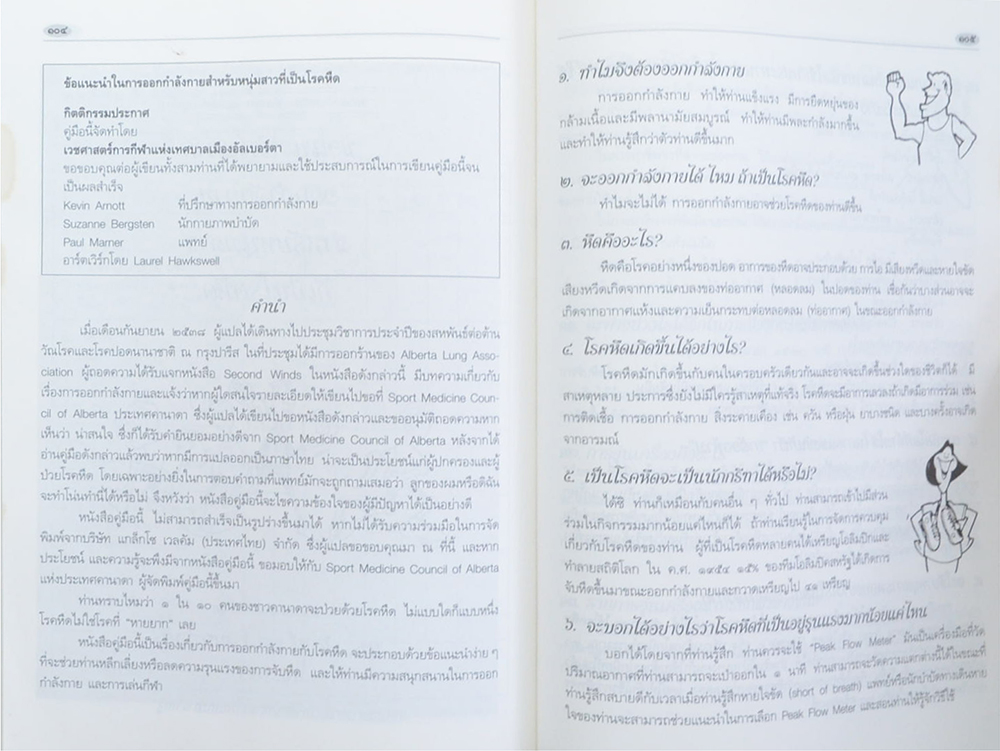 ๑๐๔
ข้อแนะนำในการออกกำลังกายสำหรับหนุ่มสาวที่เป็นโรคหืด
กิตติกรรมประกาศ
คู่มือนี้จัดทำโดย
เวชศาสตร์การกีฬาแห่งเทศบาลเมืองอัลเบอร์ตา
ขอขอบคุณต่อผู้เขียนทั้งสามท่านที่ได้พยายามและใช้ประสบการณ์ในการเขียนคู่มือนี้จน
เป็นผลสำเร็จ
Kevin Arnott ที่ปรึกษาทางการออกกำลังกาย
Suzanne Bergsten นักกายภาพบำบัด
Paul Marner แพทย์
อาร์ตเวิร์กโดย Laurel Hawkswell
คำนำ
เมื่อเดือนกันยายน ๒๕๓๘ ผู้แปลได้เดินทางไปประชุมวิชาการประจำปีของสหพันธ์ต่อต้าน
วัณโรคและโรคปอดนานาชาติ ณ กรุงปารีส ในที่ประชุมได้มีการออกร้านของ Alberta Lung Asso-
ciation ผู้ถอดความได้รับแจกหนังสือ Second Winds ในหนังสือดังกล่าวนี้ มีบทความเกี่ยวกับ
เรื่องการออกกำลังกายและแจ้งว่าหากผู้ใดสนใจรายละเอียดให้เขียนไปขอที่ Sport Medicine Coun-
cil of Alberta ประเทศคานาดา ซึ่งผู้แปลได้เขียนไปขอหนังสือดังกล่าวและขออนุมัติถอดความหาก
เห็นว่า น่าสนใจ ซึ่งก็ได้รับคำยินยอมอย่างดีจาก Sport Medicine Council of Alberta หลังจากได้
อ่านคู่มือดังกล่าวแล้วพบว่าหากมีการแปลออกเป็นภาษาไทย น่าจะเป็นประโยชน์แก่ผู้ปกครองและผู้
ป่วยโรคหืด โดยเฉพาะอย่างยิ่งในการตอบคำถามที่แพทย์มักจะถูกถามเสมอว่า ลูกของผมหรือดิฉัน
จะทำโน่นทำนี่ได้หรือไม่ จึงหวังว่า หนังสือคู่มือนี้จะไขความข้องใจของผู้มีปัญหาได้เป็นอย่างดี
หนังสือคู่มือนี้ ไม่สามารถสำเร็จเป็นรูปร่างขึ้นมาได้ หากไม่ได้รับความร่วมมือในการจัด
พิมพ์จากบริษัท แกล็กโซ เวลคัม (ประเทศไทย) จำกัด ซึ่งผู้แปลขอขอบคุณมา ณ ที่นี้ และหาก
ประโยชน์ และความรู้จะพึงมีจากหนังสือคู่มือนี้ ขอมอบให้กับ Sport Medicine Council of Alberta
แห่งประเทศคานาดา ผู้จัดพิมพ์คู่มือนี้ขึ้นมา
ท่านทราบไหมว่า ๑ ใน ๑๐ คนของชาวคานาดาจะป่วยด้วยโรคหืด ไม่แบบใดก็แบบหนึ่ง
โรคหืดไม่ใช่โรคที่ "หายยาก" เลย
หนังสือคู่มือนี้เป็นเรื่องเกี่ยวกับการออกกำลังกายกับโรคหืด จะประกอบด้วยข้อแนะนำง่าย ๆ
ที่จะช่วยท่านหลีกเลี่ยงหรือลดความรุนแรงของการจับหืด และให้ท่านมีความสนุกสนานในการออก
กำลังกาย และการเล่นกีฬา
๑๐๕
๑. ทำไมจึงต้องออกกำลังกาย
การออกกำลังกาย ทำให้ท่านแข็งแรง มีการยืดหยุ่นของ
กล้ามเนื้อและมีพลานามัยสมบูรณ์ ทำให้ท่านมีพละกำลังมากขึ้น
และทำให้ท่านรู้สึกว่าตัวท่านดีขึ้นมาก
๒. จะออกกำลังกายได้ ไหม ถ้าเป็นโรคหืด?
ทำไมจะไม่ได้ การออกกำลังกายอาจช่วยโรคหืดของท่านดีขึ้น
๓. หืดคืออะไร?
หืดคือโรคอย่างหนึ่งของปอด อาการของหืดอาจประกอบด้วย การไอ มีเสียงหวีดและหายใจขัด
เสียงหวีดเกิดจากการแคบลงของท่ออากาศ (หลอดลม) ในปอดของท่าน เชื่อกันว่าบางส่วนอาจจะ
เกิดจากอากาศแห้งและความเย็นกระทบต่อหลอดลม (ท่ออากาศ) ในขณะออกกำลังกาย
๔. โรคหืดเกิดขึ้นได้อย่างไร?
โรคหืดมักเกิดขึ้นกับคนในครอบครัวเดียวกันและอาจจะเกิดขึ้นช่วงใดของชีวิตก็ได้ มี
สาเหตุหลาย ประการซึ่งยังไม่มีใครรู้สาเหตุที่แท้จริง โรคหืดจะมีอาการเลวลงถ้าเกิดมีอาการร่วม เช่น
การติดเชื้อ การออกกำลังกาย สิ่งระคายเคือง เช่น ควัน หรือฝุ่น ยาบางชนิด และบางครั้งอาจเกิด
จากอารมณ์
๕. เป็นโรคหืดจะเป็นนักกรีฑาได้หรือไม่?
ได้ซิ ท่านก็เหมือนกับคนอื่น ๆ ทั่วไป ท่านสามารถเข้าไปมีส่วน
ร่วมในกิจกรรมมากน้อยแค่ไหนก็ได้ ถ้าท่านเรียนรู้ในการจัดการควบคุม
เกี่ยวกับโรคหืดของท่าน ผู้ที่เป็นโรคหืดหลายคนได้เหรียญโอลิมปิกและ
ทำลายสถิติโลก ใน ค.ศ. ๑๙๘๔ ๑๕% ของทีมโอลิมปิคสหรัฐได้เกิดการ
จับหืดขึ้นมาขณะออกกำลังกายและกวาดเหรียญไป ๔๑ เหรียญ
๖. จะบอกได้อย่างไรว่าโรคหืดที่เป็นอยู่รุนแรงมากน้อยแค่ไหน
บอกได้โดยจากที่ท่านรู้สึก ท่านควรจะใช้ "Peak Flow Meter" มันเป็นเครื่องมือที่วัด
ปริมาณอากาศที่ท่านสามารถจะเป่าออกใน ๑ นาที ท่านสามารถจะวัดความแตกต่างนี้ได้ในขณะที่
ท่านรู้สึกสบายดีกับเวลาเมื่อท่านรู้สึกหายใจขัด (short of breath) แพทย์หรือนักบำบัดทางเดินหาย
ใจของท่านจะสามารถช่วยแนะนำในการเลือก Peak Flow Meter และสอนท่านให้รู้จักวิธีใช้